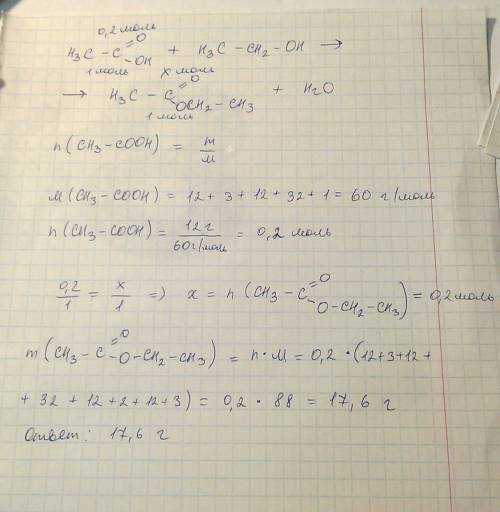 0,2 моль
H₃C – C (=O) OH + H₃C – CH₂ – OH →
1 моль x моль
→ H₃C – C (=O) OCH₂ – CH₃ + H₂O
1 моль
n (CH₃ – COOH) = m/M
M (CH₃ – COOH) = 12 + 3 + 12 + 32 + 1 = 60 г/моль
n (CH₃ – COOH) = 12 г / 60 г/моль = 0,2 моль
0,2/1 = x/1 => x = n (CH₃ – C (=O) O – CH₂ – CH₃) = 0,2 моль
m (CH₃ – C (=O) O – CH₂ – CH₃) = n · M = 0,2 · (12 + 3 + 12 +
+ 32 + 12 + 2 + 12 + 3) = 0,2 · 88 = 17,6 г
Ответ: 17,6 г